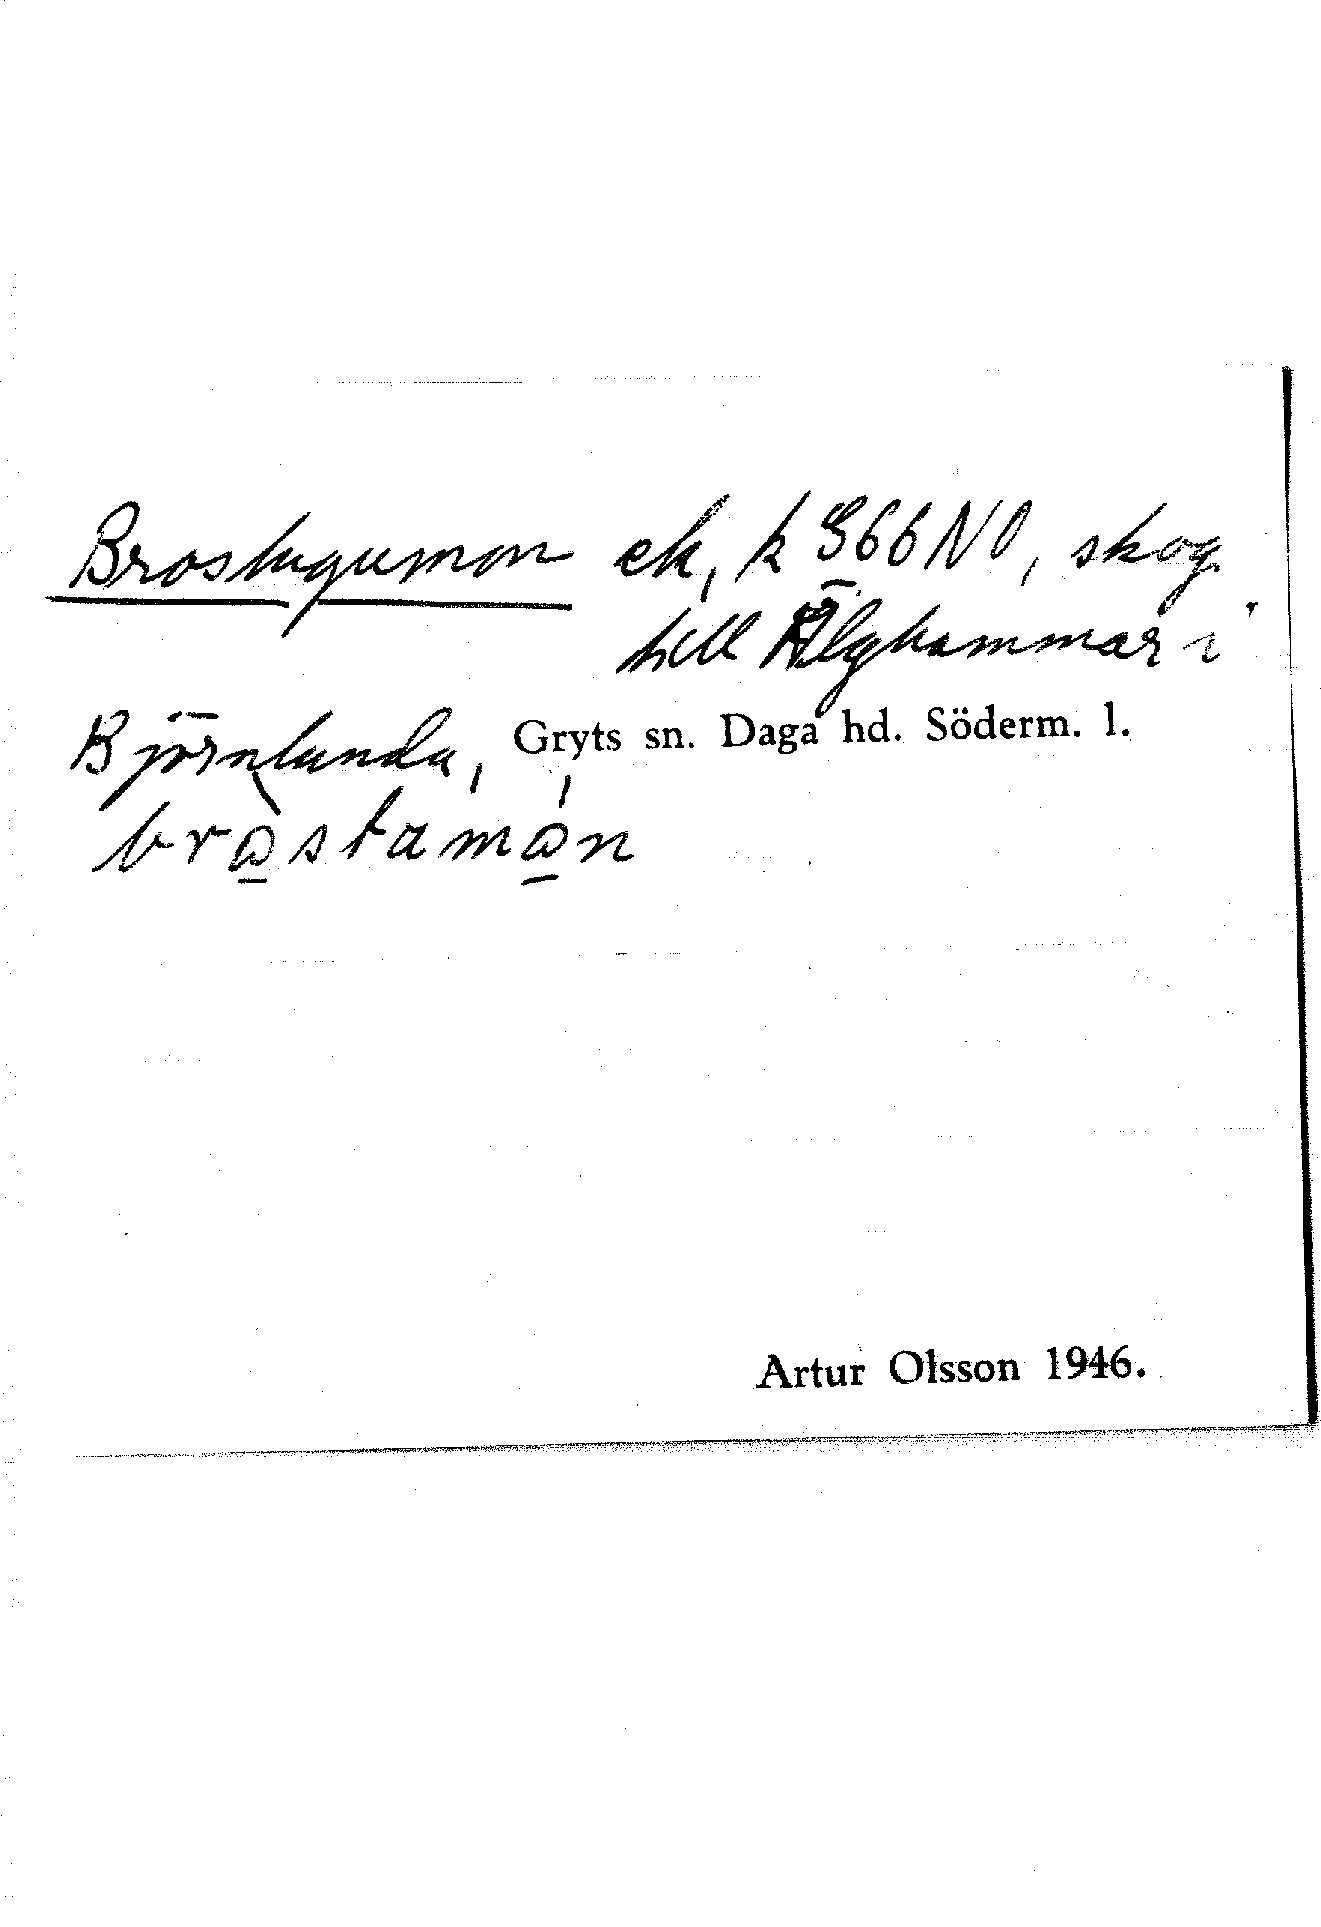 Brostugumon ek, k 366 NO, skog
till Älghammar i
Björnlunda, Gryts sn. Daga hd. Söderm. l.
bròstamón
Artur Olsson 1946.